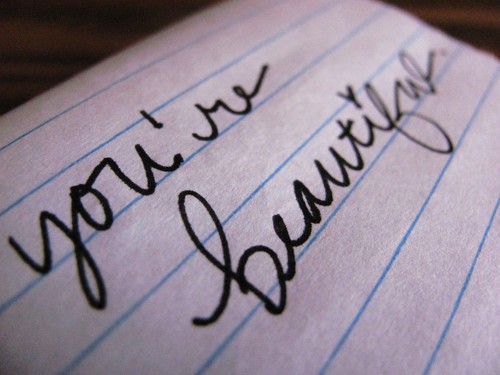 you're
beautiful.